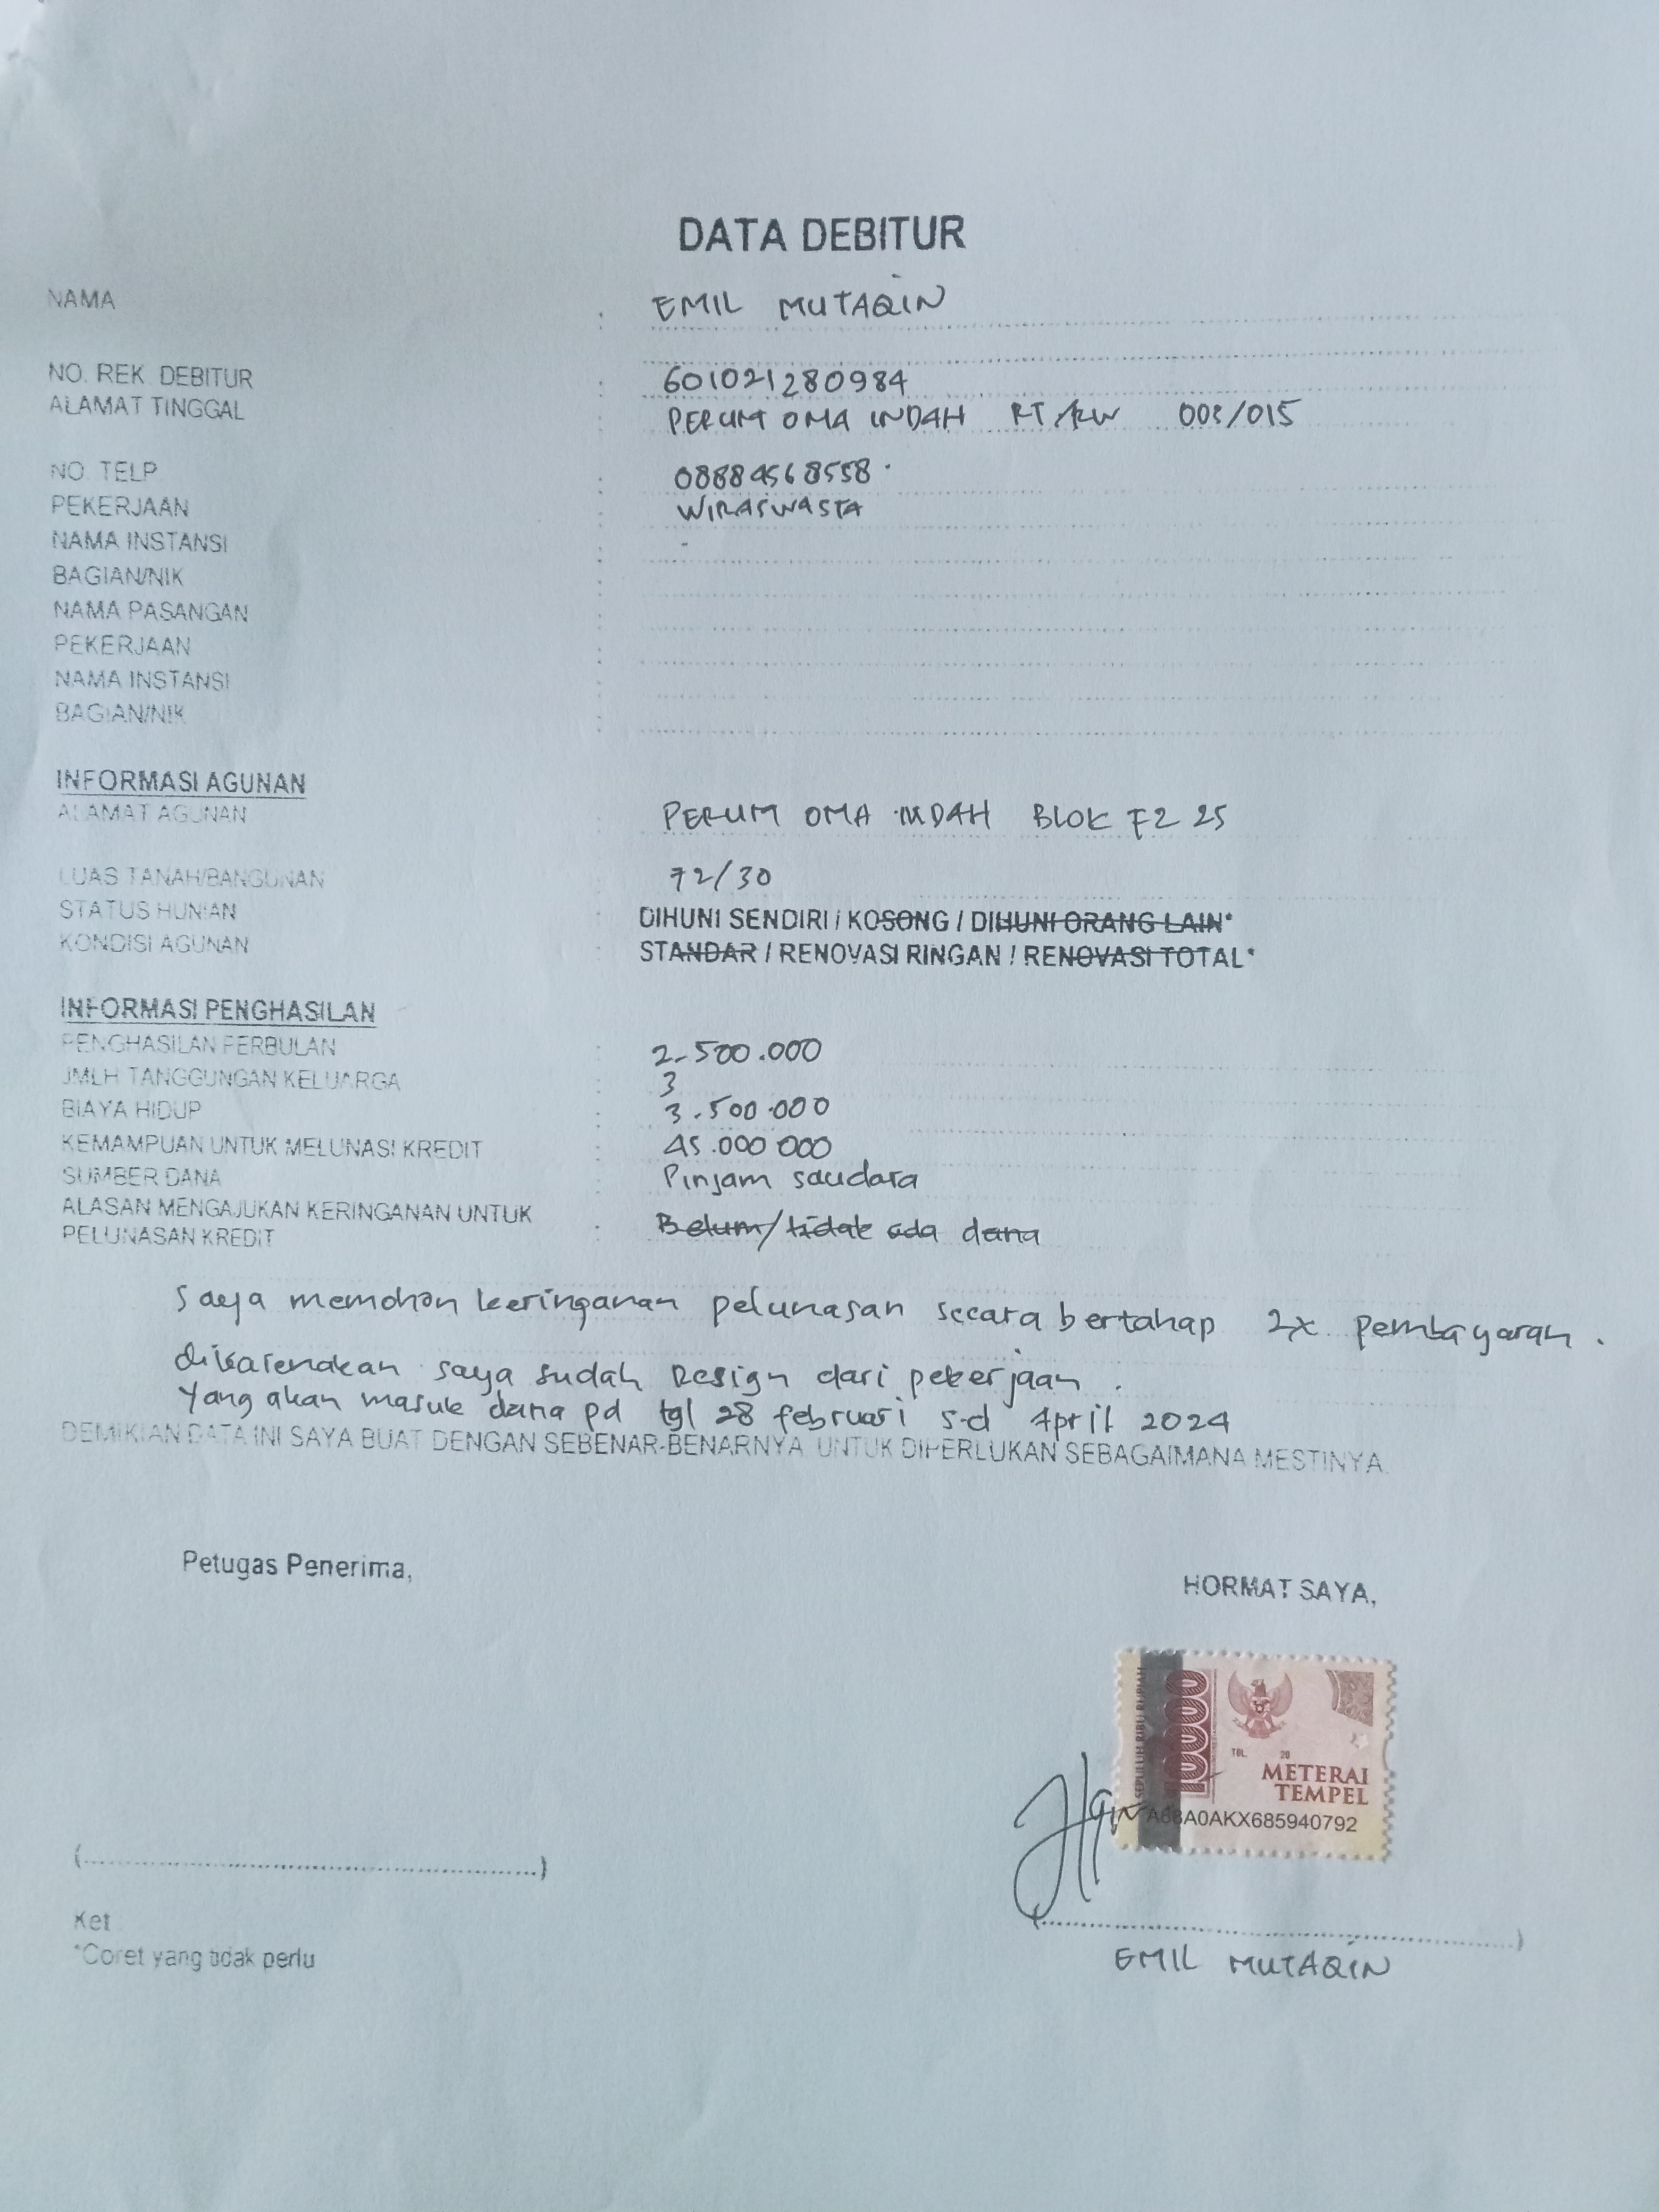 DATA DEBITUR
NAMA : EMIL MUTAQIN
NO. REK. DEBITUR : 601021280984
ALAMAT TINGGAL : PERUM OMA INDAH RT/RW /015
NO. TELP : 08884568558
PEKERJAAN : WIRASWASTA
NAMA INSTANSI : -
BAGIAN/NIK :
NAMA PASANGAN :
PEKERJAAN :
NAMA INSTANSI :
BAGIAN/NIK :
INFORMASI AGUNAN
ALAMAT AGUNAN : PERUM OMA INDAH BLOK F2 25
LUAS TANAH/BANGUNAN : 72/30
STATUS HUNIAN : DIHUNI SENDIRI / KOSONG / DIHUNI ORANG LAIN*
KONDISI AGUNAN : STANDAR / RENOVASI RINGAN / RENOVASI TOTAL*
INFORMASI PENGHASILAN
PENGHASILAN PERBULAN : 2.500.000
JMLH TANGGUNGAN KELUARGA : 3
BIAYA HIDUP : 3.500.000
KEMAMPUAN UNTUK MELUNASI KREDIT : 45.000 000
SUMBER DANA : Pinjam saudara
ALASAN MENGAJUKAN KERINGANAN UNTUK
PELUNASAN KREDIT : Belum/tidak ada dana
Saya memohon keringanan pelunasan secara bertahap 2x pembayaran.
dikarenakan saya sudah Resign dari pekerjaan.
Yang akan masuk dana pd tgl 28 februari s-d April 2024
DEMIKIAN DATA INI SAYA BUAT DENGAN SEBENAR-BENARNYA UNTUK DIPERLUKAN SEBAGAIMANA MESTINYA.
Petugas Penerima,
HORMAT SAYA,
SEPULUH RIBU RUPIAH
10000
TGL. 20
METERAI
TEMPEL
A0AKX685940792
(..............................)
(..............................)
EMIL MUTAQIN
Ket
*Coret yang tidak perlu